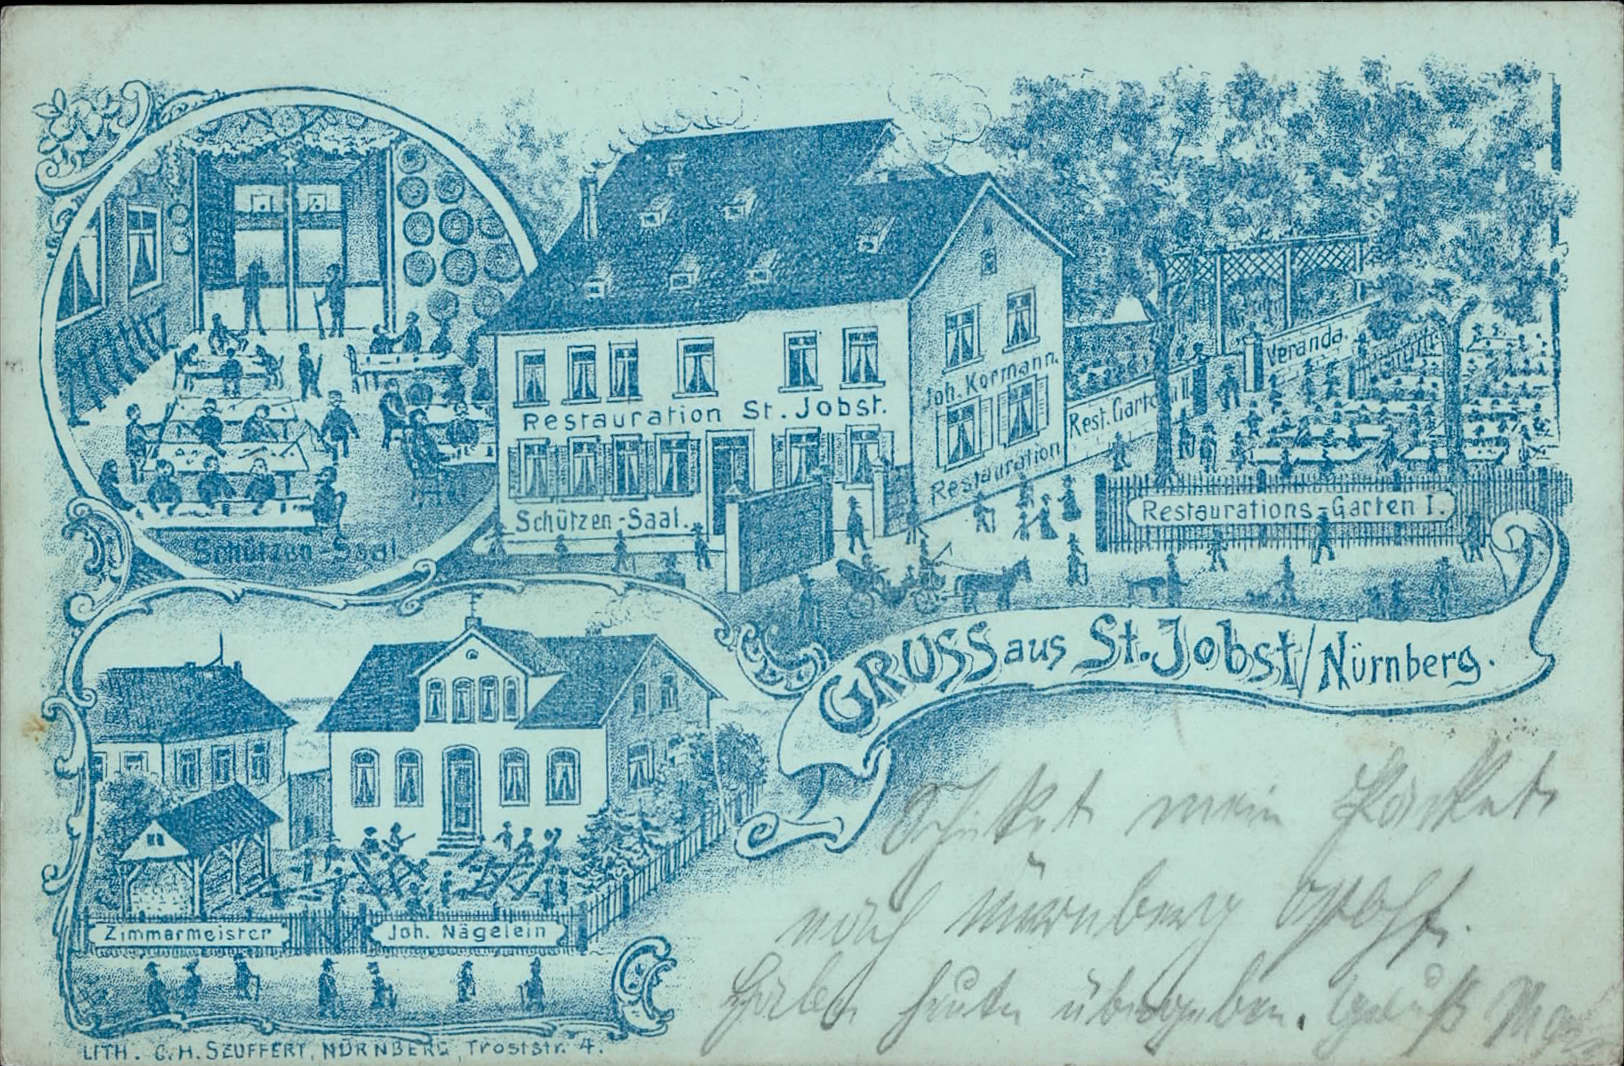 Restauration St. Jobst.
Joh. Kormann.
Restauration
Schützen-Saal.
Schützen-Saal.
Rest. Garten
Veranda.
Restaurations-Garten I.
GRUSS aus St. Jobst/Nürnberg.
Zimmermeister
Joh. Nägelein
LITH. C. H. SEUFFERT, NÜRNBERG, Troststr. 4.
Schickt mein Packet
nach Nürnberg
haben heute übergeben. Gruß